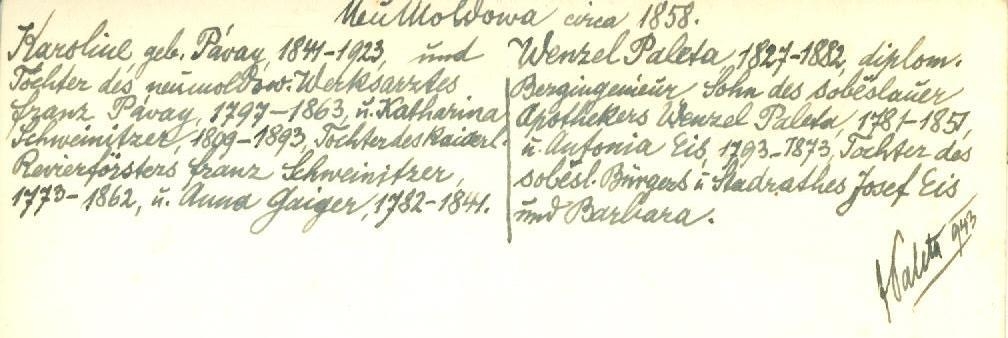 Neu Moldowa circa 1858.
Karoline geb. Pávay, 1841-1923, und
Tochter des neumoldow. Werksarztes
Franz Pávay, 1797-1863, u. Katharina
Schweinitzer, 1809-1893, Tochter des kaiserl.
Revierförsters Franz Schweinitzer,
1773-1862, u. Anna Gaiger, 1782-1841.
Wenzel Paleta, 1827-1882, diplom.
Bergingenieur Sohn des soběslauer
Apothekers Wenzel Paleta, 1781-1851,
u. Antonia Eis, 1793-1873, Tochter des
soběsl. Bürgers u Stadrathes Josef Eis
und Barbara.
Paleta 943